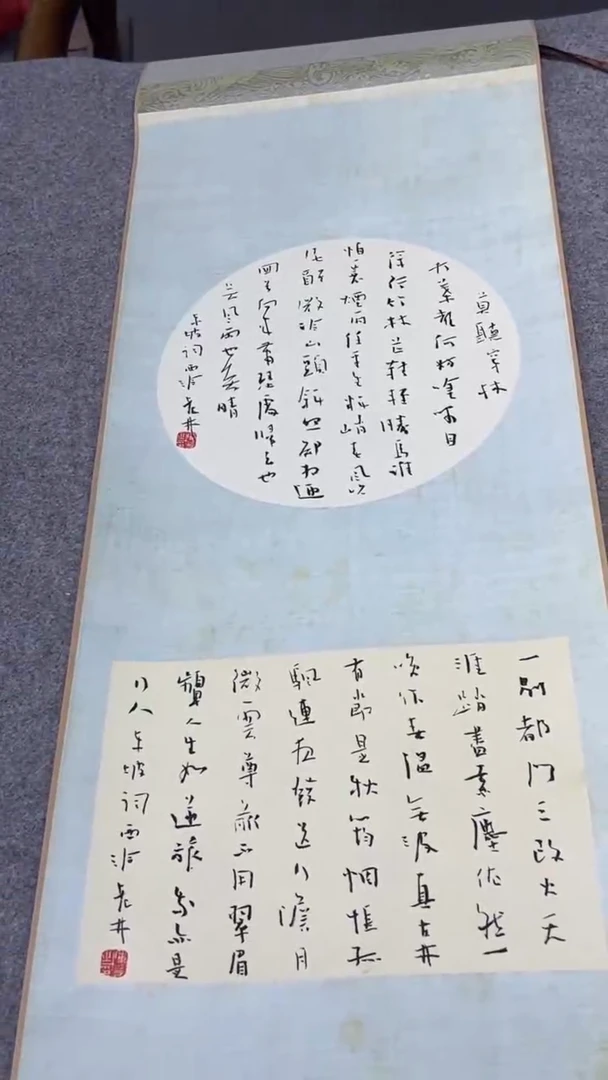 莫聽穿林
打葉聲何妨吟嘯且
徐行竹杖芒鞋輕勝馬誰
怕一蓑煙雨任平生料峭春風吹
酒醒微冷山頭斜照却相迎
回首向來蕭瑟處歸去也
無風雨也無晴
東坡詞西泠老井
一別都門三改火天
涯踏盡紅塵依然一
笑作春溫無波真古井
有節是秋筠惆悵孤
帆連夜發送行澹月
微雲尊前不用翠眉
顰人生如逆旅我亦是
行人東坡詞西泠老井